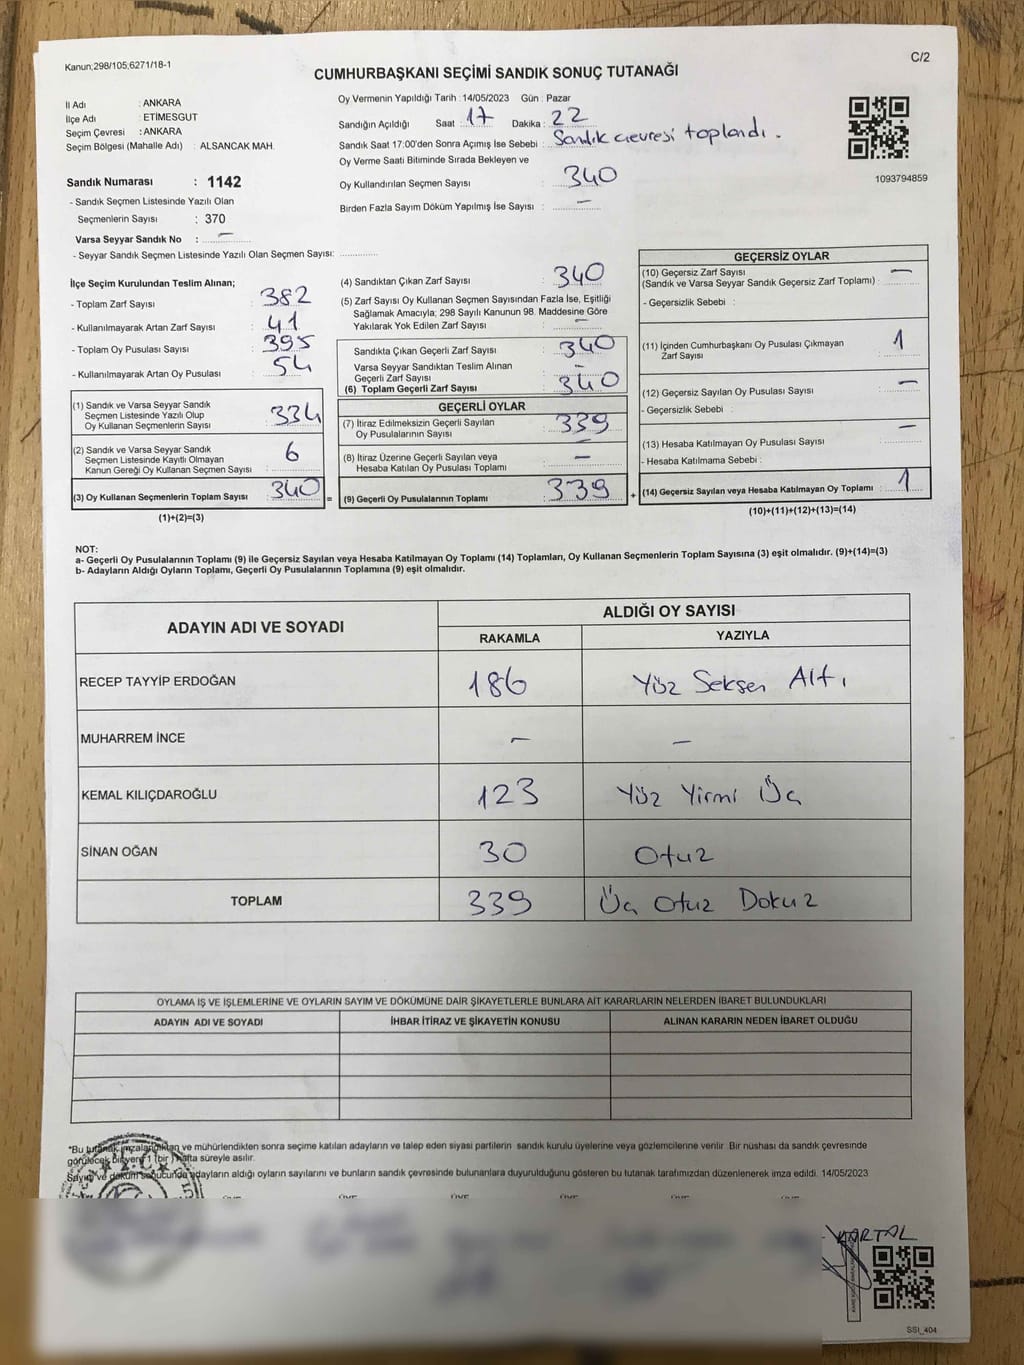 Kanun;298/105;6271/18-1
C/2
CUMHURBAŞKANI SEÇİMİ SANDIK SONUÇ TUTANAĞI
İl Adı : ANKARA
İlçe Adı : ETİMESGUT
Seçim Çevresi : ANKARA
Seçim Bölgesi (Mahalle Adı) : ALSANCAK MAH.
Oy Vermenin Yapıldığı Tarih : 14/05/2023 Gün : Pazar
Sandığın Açıldığı Saat : 17 Dakika : 22
Sandık Saat 17:00'den Sonra Açımış İse Sebebi : Sandık çevresi toplandı.
Oy Verme Saati Bitiminde Sırada Bekleyen ve
Oy Kullandırılan Seçmen Sayısı : 340
Birden Fazla Sayım Döküm Yapılmış İse Sayısı : —
1093794859
Sandık Numarası : 1142
- Sandık Seçmen Listesinde Yazılı Olan
Seçmenlerin Sayısı : 370
Varsa Seyyar Sandık No : —
- Seyyar Sandık Seçmen Listesinde Yazılı Olan Seçmen Sayısı:
İlçe Seçim Kurulundan Teslim Alınan;
- Toplam Zarf Sayısı : 382
- Kullanılmayarak Artan Zarf Sayısı : 41
- Toplam Oy Pusulası Sayısı : 395
- Kullanılmayarak Artan Oy Pusulası : 54
(1) Sandık ve Varsa Seyyar Sandık
Seçmen Listesinde Yazılı Olup
Oy Kullanan Seçmenlerin Sayısı : 334
(2) Sandık ve Varsa Seyyar Sandık
Seçmen Listesinde Kayıtlı Olmayan
Kanun Gereği Oy Kullanan Seçmen Sayısı : 6
(3) Oy Kullanan Seçmenlerin Toplam Sayısı : 340 =
(1)+(2)=(3)
(4) Sandıktan Çıkan Zarf Sayısı : 340
(5) Zarf Sayısı Oy Kullanan Seçmen Sayısından Fazla İse, Eşitliği
Sağlamak Amacıyla; 298 Sayılı Kanunun 98. Maddesine Göre
Yakılarak Yok Edilen Zarf Sayısı : —
Sandıkta Çıkan Geçerli Zarf Sayısı : 340
Varsa Seyyar Sandıktan Teslim Alınan
Geçerli Zarf Sayısı : —
(6) Toplam Geçerli Zarf Sayısı : 340
GEÇERLİ OYLAR
(7) İtiraz Edilmeksizin Geçerli Sayılan
Oy Pusulalarının Sayısı : 339
(8) İtiraz Üzerine Geçerli Sayılan veya
Hesaba Katılan Oy Pusulası Toplamı : —
(9) Geçerli Oy Pusulalarının Toplamı : 339 +
GEÇERSİZ OYLAR
(10) Geçersiz Zarf Sayısı
(Sandık ve Varsa Seyyar Sandık Geçersiz Zarf Toplamı) : —
- Geçersizlik Sebebi :
(11) İçinden Cumhurbaşkanı Oy Pusulası Çıkmayan
Zarf Sayısı : 1
(12) Geçersiz Sayılan Oy Pusulası Sayısı : —
- Geçersizlik Sebebi :
(13) Hesaba Katılmayan Oy Pusulası Sayısı : —
- Hesaba Katılmama Sebebi :
(14) Geçersiz Sayılan veya Hesaba Katılmayan Oy Toplamı : 1
(10)+(11)+(12)+(13)=(14)
NOT:
a- Geçerli Oy Pusulalarının Toplamı (9) ile Geçersiz Sayılan veya Hesaba Katılmayan Oy Toplamı (14) Toplamları, Oy Kullanan Seçmenlerin Toplam Sayısına (3) eşit olmalıdır. (9)+(14)=(3)
b- Adayların Aldığı Oyların Toplamı, Geçerli Oy Pusulalarının Toplamına (9) eşit olmalıdır.
ADAYIN ADI VE SOYADI
ALDIĞI OY SAYISI
RAKAMLA YAZIYLA
RECEP TAYYİP ERDOĞAN 186 Yüz Seksen Altı
MUHARREM İNCE — —
KEMAL KILIÇDAROĞLU 123 Yüz Yirmi Üç
SİNAN OĞAN 30 Otuz
TOPLAM 339 Üç Otuz Dokuz
OYLAMA İŞ VE İŞLEMLERİNE VE OYLARIN SAYIM VE DÖKÜMÜNE DAİR ŞİKAYETLERLE BUNLARA AİT KARARLARIN NELERDEN İBARET BULUNDUKLARI
ADAYIN ADI VE SOYADI İHBAR İTİRAZ VE ŞİKAYETİN KONUSU ALINAN KARARIN NEDEN İBARET OLDUĞU
*Bu tutanak imzalandıktan ve mühürlendikten sonra seçime katılan adayların ve talep eden siyasi partilerin sandık kurulu üyelerine veya gözlemcilerine verilir. Bir nüshası da sandık çevresinde
görülecek bir yere 1 (bir) hafta süreyle asılır.
Sayım ve döküm sonucunda adayların aldığı oyların sayılarını ve bunların sandık çevresinde bulunanlara duyurulduğunu gösteren bu tutanak tarafımızdan düzenlenerek imza edildi. 14/05/2023
KARTAL
SSI_404